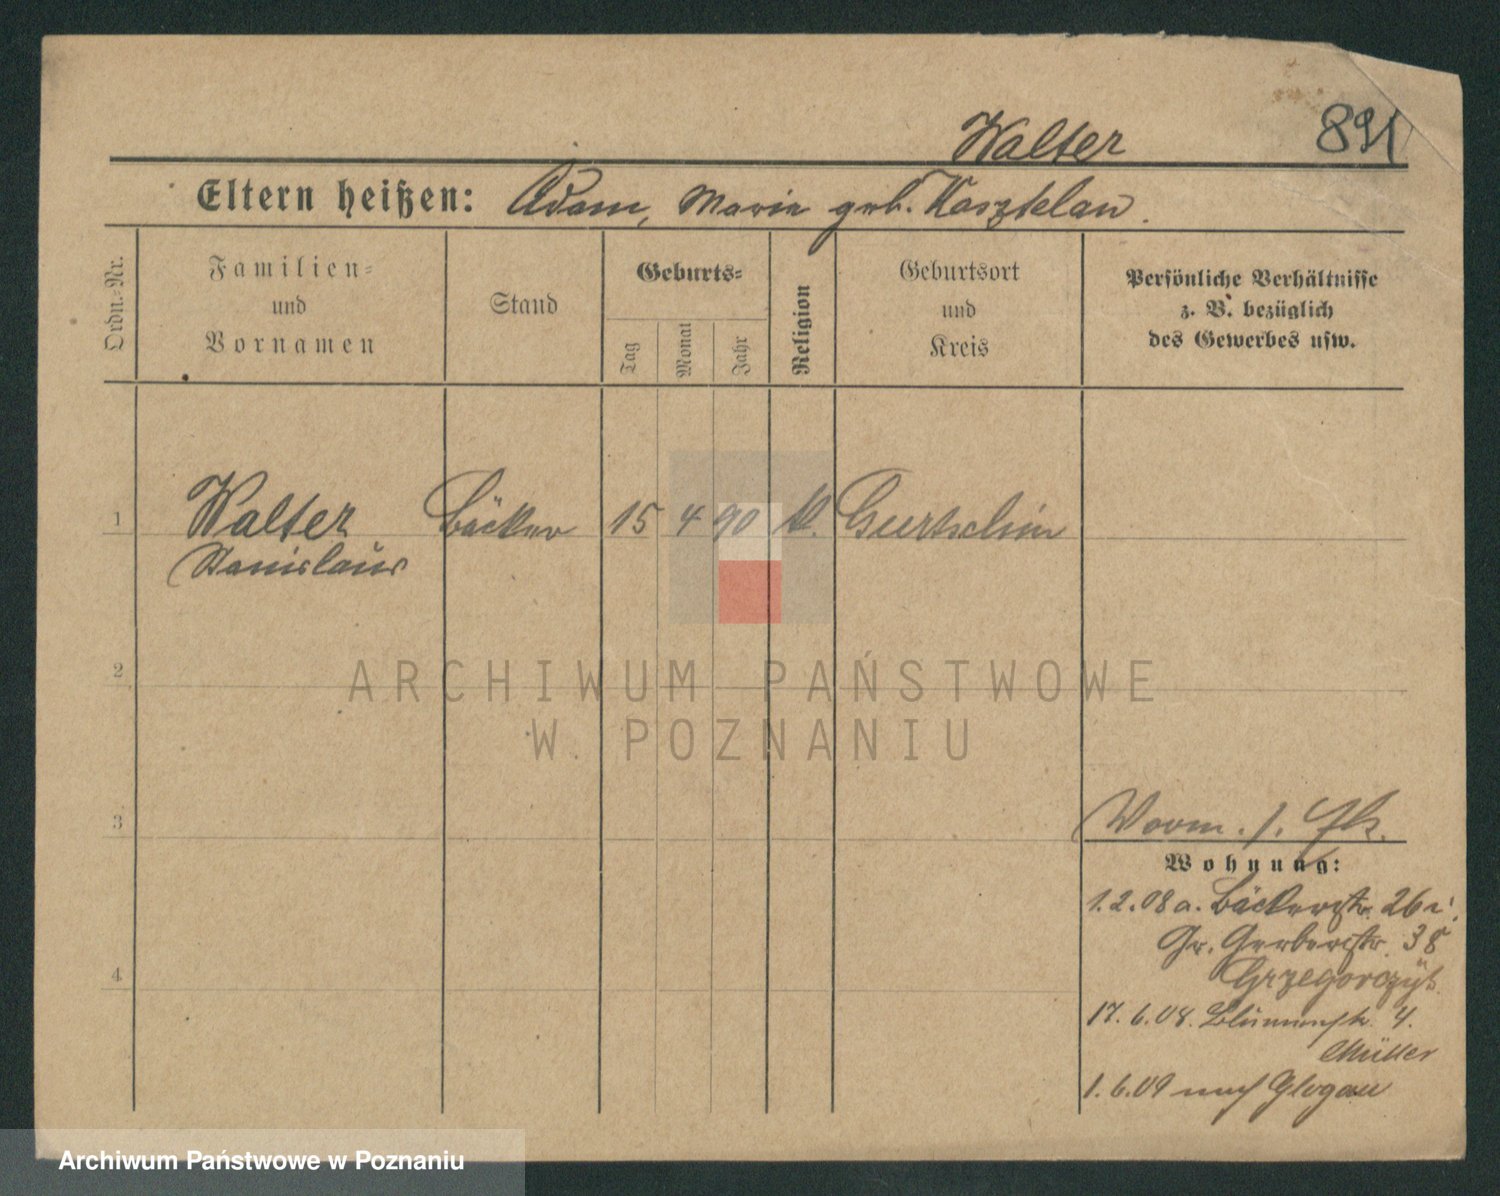 Walter 891
Eltern heißen: Adam, Marie geb. Kasztelan.
Ordn.-Nr.
Familien-
und
Vornamen
Stand
Geburts-
Tag
Monat
Jahr
Religion
Geburtsort
und
Kreis
Persönliche Verhältnisse
z. B. bezüglich
des Gewerbes usw.
1 Walter Bäcker 15 4 90 k. Gurtschin
Stanislaus
2
ARCHIWUM PAŃSTWOWE
W POZNANIU
3
Vorm. f.
Wohnung:
1.2.08 a. Bäckerstr. 26
Gr. Gerberstr. 38
Grzegorczyk
4
17.6.08. Blumenstr. 4.
Müller
1.6.09 nach Glogau
Archiwum Państwowe w Poznaniu